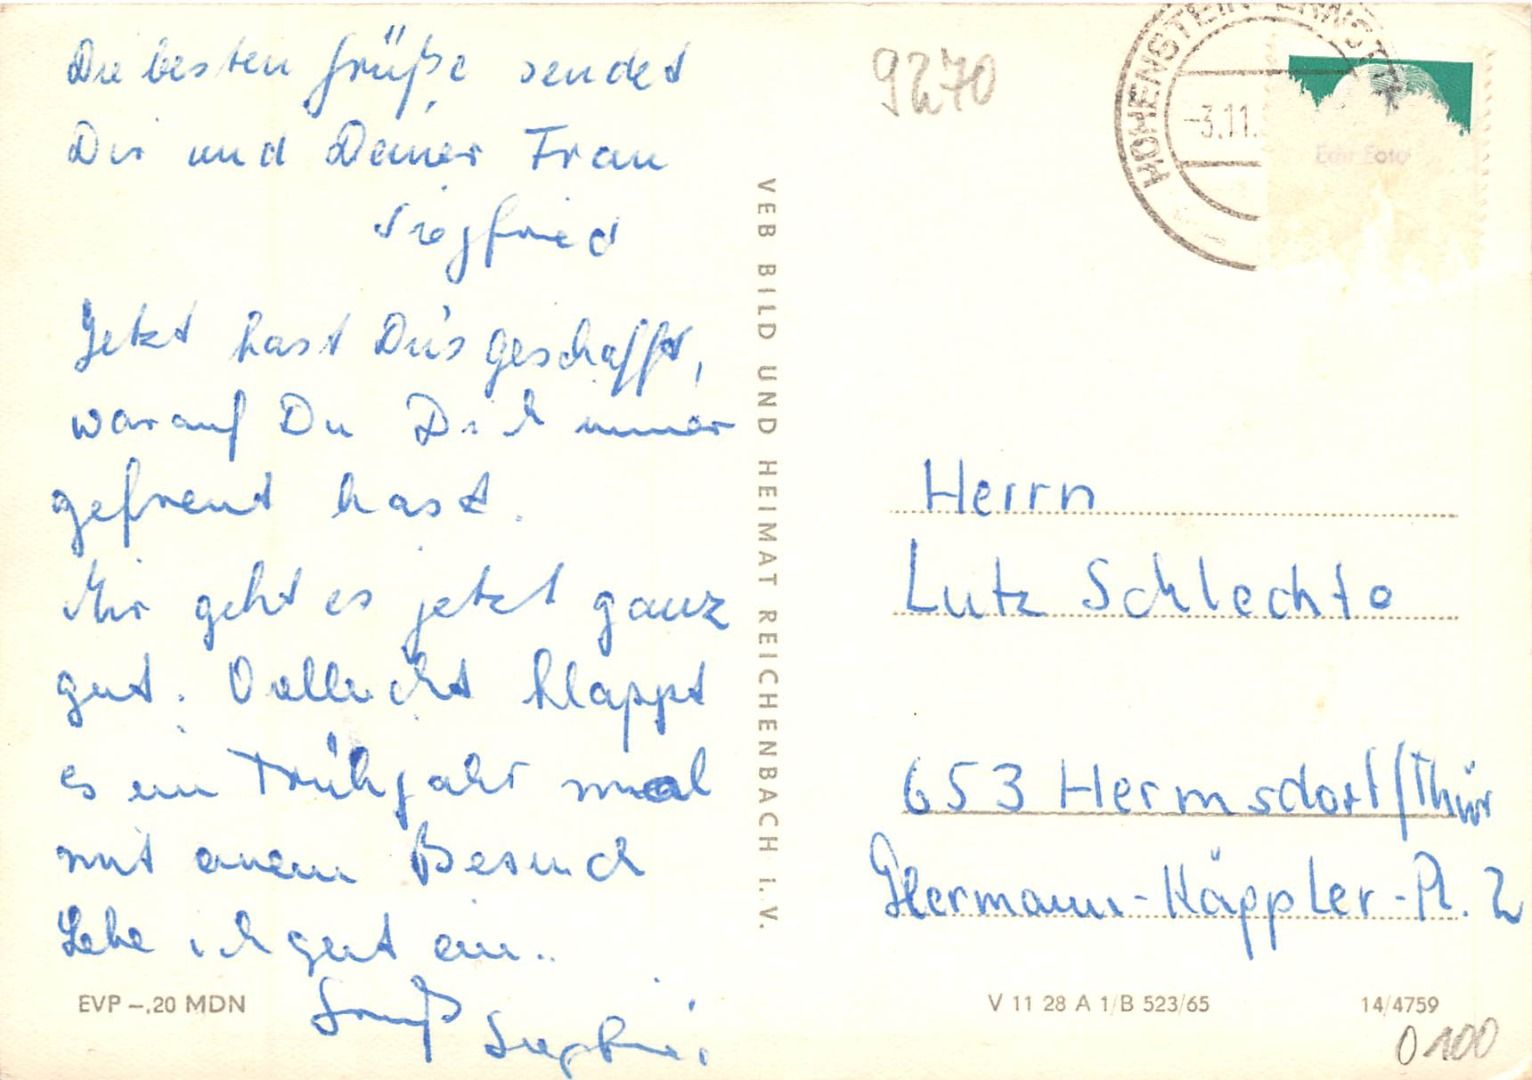 Die besten Grüße sendet
Dir und Deiner Frau
Siegfried
Jetzt hast Du's geschafft,
worauf Du Dich immer
gefreut hast.
Mir geht es jetzt ganz
gut. Vielleicht klappt
es im Frühjahr mal
mit einem Besuch
Lebe ich gut ein..
Gruß Siegfried
EVP –,20 MDN
VEB BILD UND HEIMAT REICHENBACH i. V.
9270
HOHENSTEIN-ERNSTT
-3.11.
Echt Foto
Herrn
Lutz Schlechte
653 Hermsdorf/Thür
Hermann-Käppler-Pl. 2
V 11 28 A 1/B 523/65
14/4759
0100